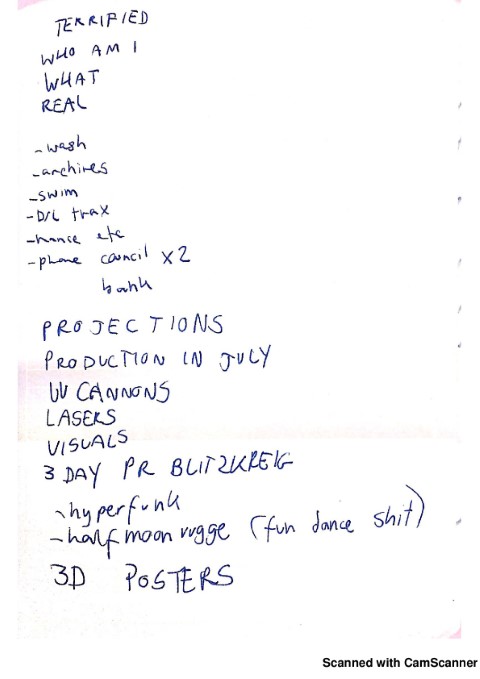 TERRIFIED
WHO AM I
WHAT
REAL
-wash
-archives
-swim
-D/L trax
-hance etc
-phone council x2
bank
PROJECTIONS
PRODUCTION IN JULY
UV CANNONS
LASERS
VISUALS
3 DAY PR BLITZKREIG
-hyperfunk
-half moon rugge (fun dance shit)
3D POSTERS
Scanned with CamScanner